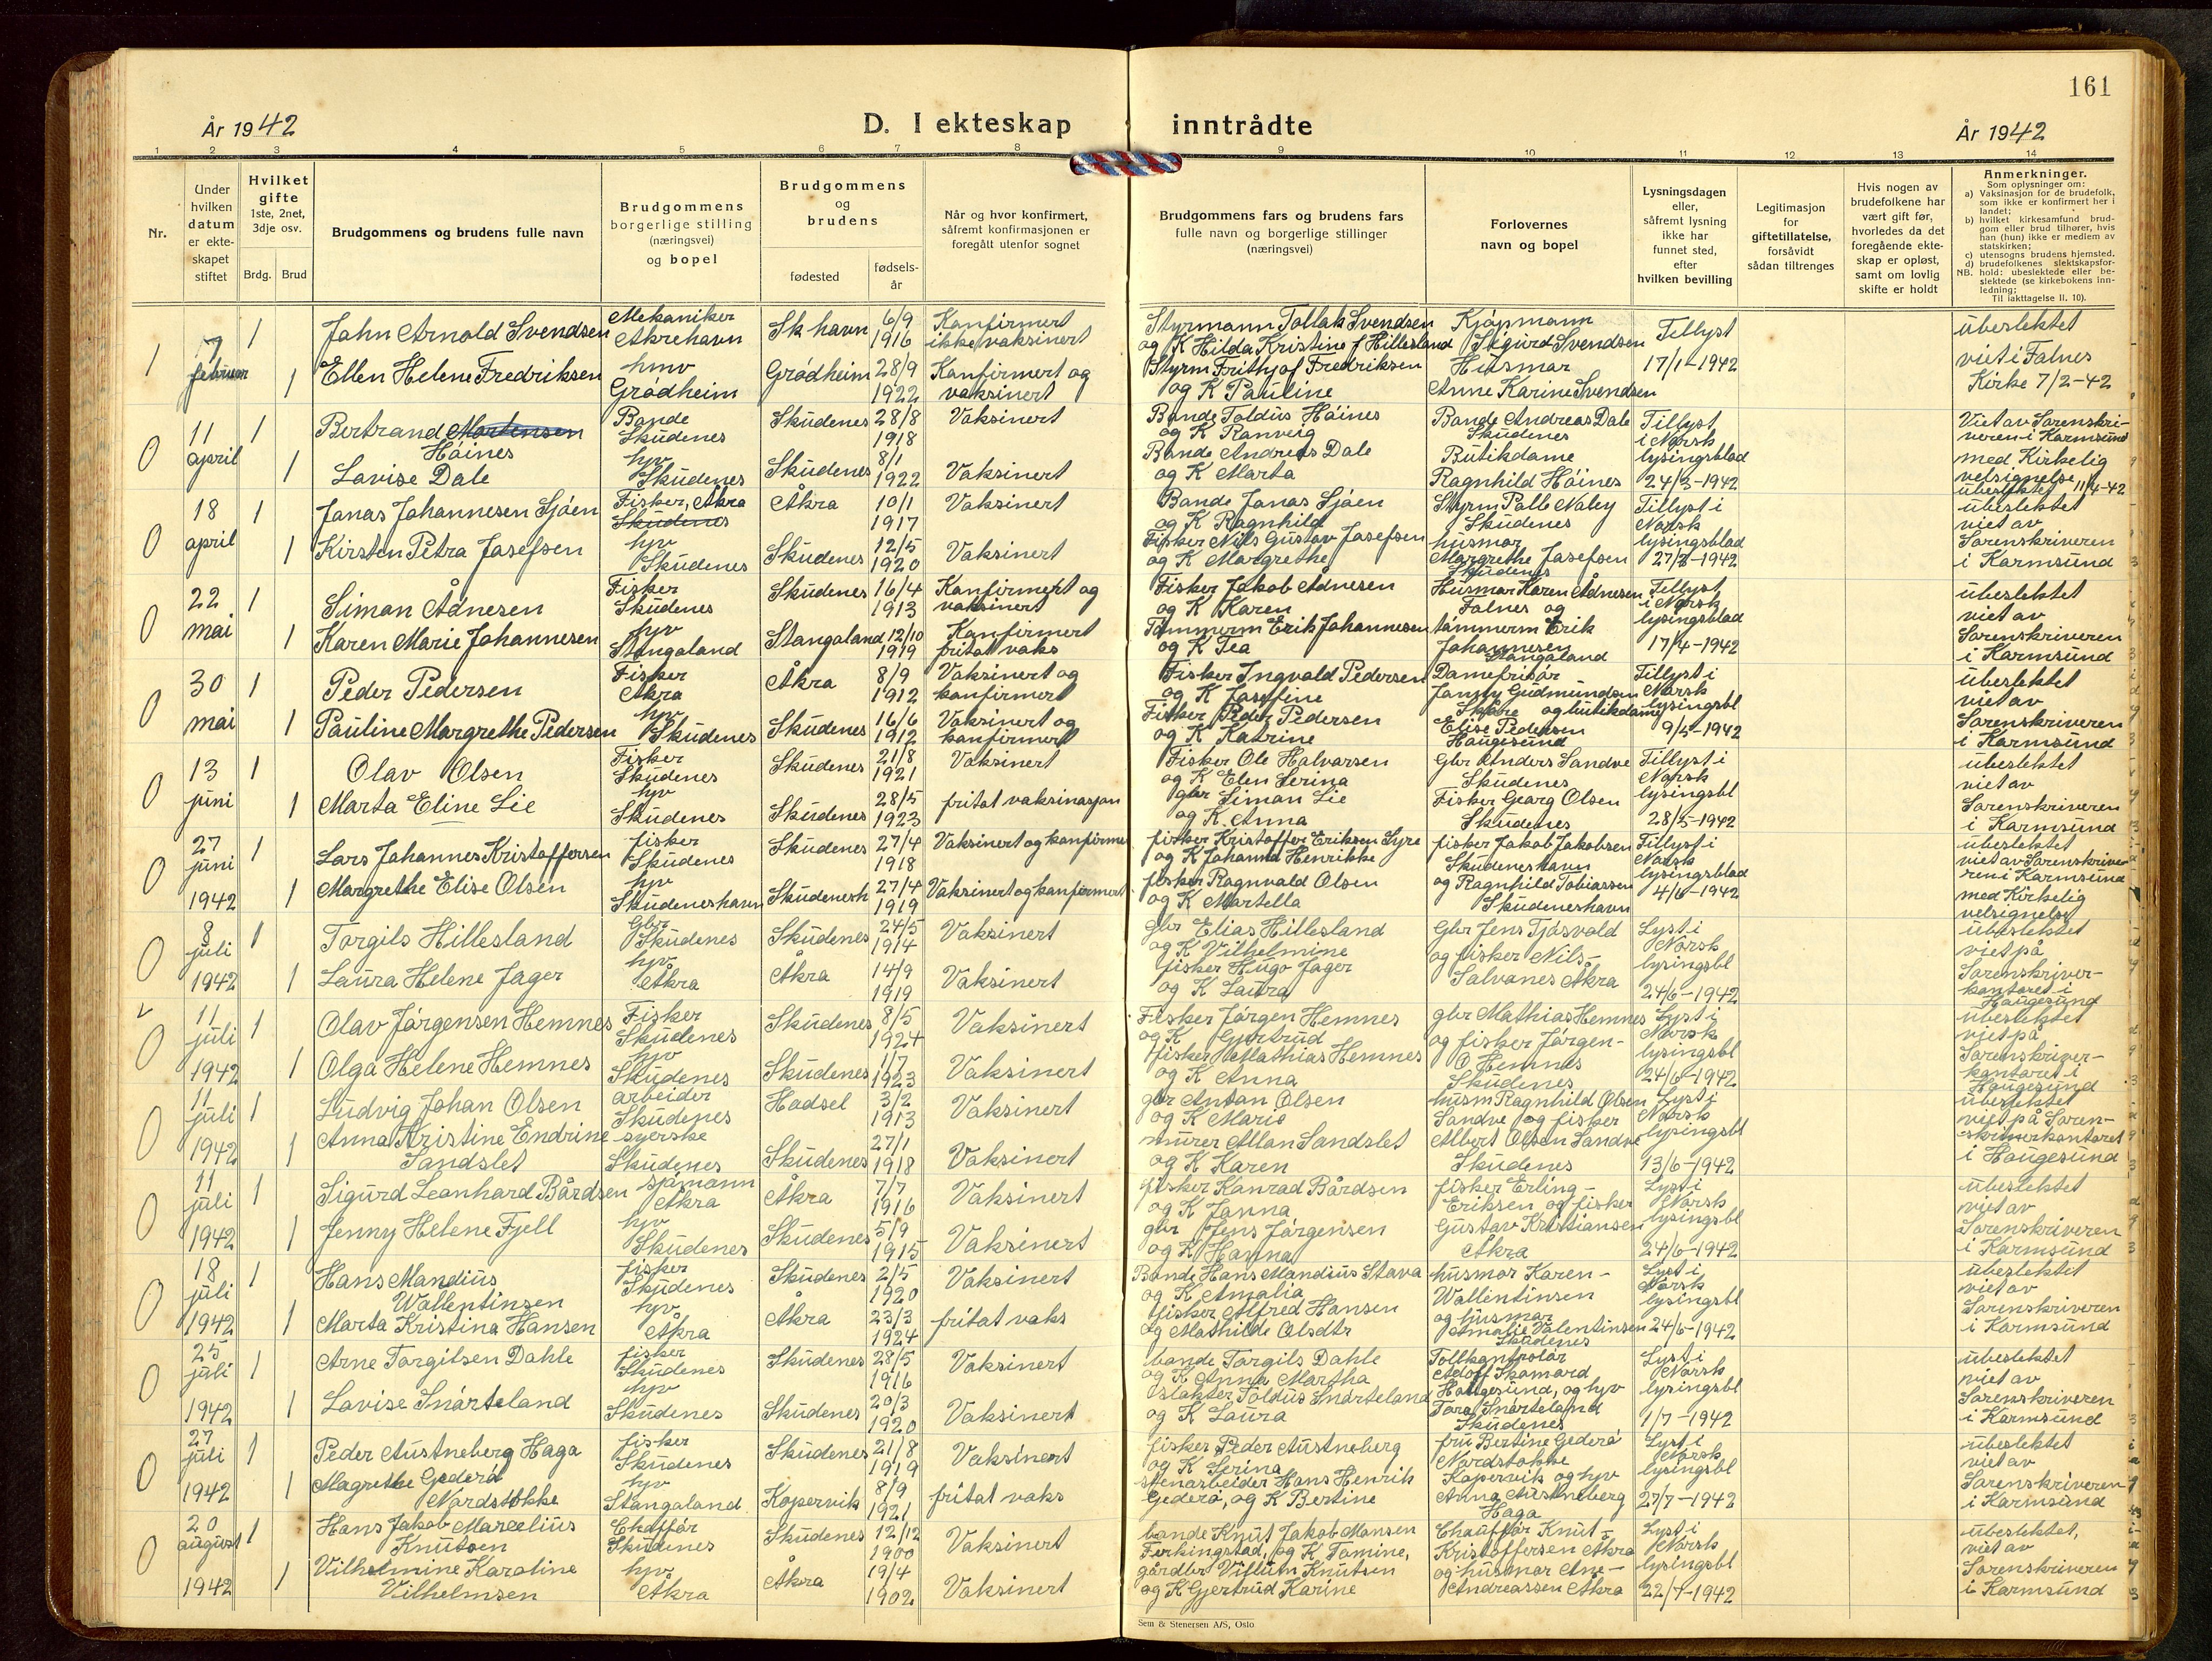 161
År 1942
D. I ekteskap inntrådte
År 1942
1 2 3 4 5 6 7 8 9 10 11 12 13 14
Nr.
Under hvilken datum er ekteskapet stiftet
Hvilket gifte 1ste, 2net, 3dje osv.
Brdg. Brud
Brudgommens og brudens fulle navn
Brudgommens borgerlige stilling (næringsvei) og bopel
Brudgommens og brudens
fødested
fødselsår
Når og hvor konfirmert, såfremt konfirmasjonen er foregått utenfor sognet
Brudgommens fars og brudens fars fulle navn og borgerlige stillinger (næringsvei)
Forlovernes navn og bopel
Lysningsdagen eller, såfremt lysning ikke har funnet sted, efter hvilken bevilling
Legitimasjon for giftetillatelse, forsåvidt sådan tiltrenges
Hvis nogen av brudefolkene har vært gift før, hvorledes da det foregående ekteskap er opløst, samt om lovlig skifte er holdt
Anmerkninger.
Som oplysninger om:
a) Vaksinasjon for de brudefolk, som ikke er konfirmert her i landet;
b) hvilket kirkesamfund brudgom eller brud tilhører, hvis han (hun) ikke er medlem av statskirken;
c) utensogns brudens hjemsted.
d) brudefolkenes slektskapsforhold: ubeslektede eller beslektede (se kirkebokens innledning;
NB.
Til iakttagelse II. 10).
1 7 februar 1 Jahn Arnold Svendsen Mekaniker Åkrehavn Sk havn 6/9 1916 Konfirmert ikke vaksinert Styrmann Tollak Svendsen og K Hilda Kristine f Hillesland Kjøpmann Sigurd Svendsen Tillyst 17/1-1942 ubeslektet viet i Falnes Kirke 7/2-42
1 Ellen Helene Fredriksen hmv Grødheim Grødheim 28/9 1922 Konfirmert og vaksinert Styrm Frithjof Fredriksen og K Pauline Husmor Anne Karine Svendsen
0 11 april 1 Bertrand Mortensen Høines Bonde Skudenes Skudenes 28/8 1918 Vaksinert Bonde Toldus Høines og K Ranveig Bonde Andreas Dale Skudenes Tillyst i Norsk lysingsblad 24/3-1942 Viet av Sorenskriveren i Karmsund med Kirkelig velsignelse 11/4-42 ubeslektet
1 Lovise Dale hjv Skudenes Skudenes 8/1 1922 Vaksinert Bonde Andreas Dale og K Marta Butikdame Ragnhild Høines
0 18 april 1 Jonas Johannesen Sjøen Fisker, Åkra Skudenes Åkra 10/1 1917 Vaksinert Bonde Jonas Sjøen og K Ragnhild Styrm Palle Naley Skudenes Tillyst i Norsk lysingsblad 27/3-1942 ubeslektet viet av Sorenskriveren i Karmsund
1 Kirsten Petra Josefsen hjv Skudenes Skudenes 12/5 1920 Vaksinert Fisker Nils Gustav Josefsen og K Margrethe husmor Margrethe Josefsen Skudenes
0 22 mai 1 Simon Ådnesen Fisker Skudenes Skudenes 16/4 1913 Konfirmert og vaksinert Fisker Jakob Ådnesen og K Karen Husmor Karen Ådnesen Falnes og Tillyst i Norsk lysingsblad 17/4-1942 ubeslektet viet av Sorenskriveren i Karmsund
1 Karen Marie Johannesen hjv Stangaland Stangaland 12/10 1919 Konfirmert fritat vaks Tømmerm Erik Johannesen og K Tea tømmerm Erik Johannesen Stangaland
0 30 mai 1 Peder Pedersen Fisker Åkra Åkra 8/9 1912 Vaksinert og konfirmert Fisker Ingvald Pedersen og K Josefine Damefrisør Jenny Gudmundsen Skåre og butikdame Tillyst i Norsk lysingsbl 9/5-1942 ubeslektet viet av Sorenskriveren i Karmsund
1 Pauline Margrethe Pedersen hjv Skudenes Skudenes 16/6 1912 Vaksinert og konfirmert Fisker Peder Pedersen og K Katrine Elise Pedersen Haugesund
0 13 juni 1 Olav Olsen Fisker Skudenes Skudenes 21/8 1921 Vaksinert Fisker Ole Halvorsen og K Elen Serina Gbr Anders Sandve Skudenes Tillyst i Norsk lysingsbl 28/5-1942 ubeslektet viet av Sorenskriveren i Karmsund
1 Marta Eline Lie hjv Skudenes Skudenes 28/5 1923 fritat vaksinasjon gbr Simon Lie og K. Anna Fisker Georg Olsen Skudenes
0 27 juni 1942 1 Lars Johannes Kristoffersen fisker Skudenes Skudenes 27/4 1918 Vaksinert og konfirme fisker Kristoffer Eriksen Syre og K Johanna Henrikke fisker Jakob Jakobsen Skudeneshavn Tillyst i Norsk lysingsblad 4/6-1942 ubeslektet viet av Sorenskriveren i Karmsund med Kirkelig velsignelse
1 Margrethe Elise Olsen hjv Skudeneshavn Skudenesh 27/4 1919 Vaksinert og konfirmert fisker Ragnvald Olsen og K Martella og Ragnhild Tobiassen Skudeneshavn
0 8 juli 1942 1 Torgils Hillesland Gbr Skudenes Skudenes 24/5 1914 Vaksinert gbr Elias Hillesland og K Vilhelmine Gbr Jens Tjøsvold Lyst i Norsk lysingsbl 24/6-1942 ubeslektet viet på Sorenskriverkontoret i Haugesund
1 Laura Helene Jager hjv Åkra Åkra 14/9 1919 Vaksinert fisker Hugo Jager og K Laura og fisker Nils Salvanes Åkra
0 11 juli 1942 1 Olav Jørgensen Hemnes Fisker Skudenes Skudenes 8/5 1924 Vaksinert Fisker Jørgen Hemnes og K Gjertrud gbr Mathias Hemnes Lyst i Norsk lysingsbl 24/6-1942 ubeslektet viet på Sorenskriverkontoret i Haugesund
1 Olga Helene Hemnes hjv Skudenes Skudenes 1/7 1923 Vaksinert fisker Mathias Hemnes og K Anna og fisker Jørgen O Hemnes Skudenes
0 11 juli 1942 1 Ludvig Johan Olsen arbeider Skudenes Hadsel 3/2 1913 Vaksinert gbr Anton Olsen og K Marie husm Ragnhild Olsen Sandve og fisker Lyst i Norsk lysingsbl 13/6-1942 ubeslektet viet på Sorenskriverkontoret i Haugesund
1 Anna Kristine Endrine Sandslet syerske Skudenes Skudenes 27/1 1918 Vaksinert murer Allan Sandslet og K Karen Albert Olsen Sandve Skudenes
0 11 juli 1942 1 Sigurd Leonhard Bårdsen sjømann Åkra Åkra 7/7 1916 Vaksinert fisker Konrad Bårdsen og K Janna fisker Erling Eriksen og fisker Lyst i Norsk lysingsbl 24/6-1942 ubeslektet viet av Sorenskriveren i Karmsund
1 Jenny Helene Fjell hjv Skudenes Skudenes 5/9 1915 Vaksinert gbr Jens Jørgensen og K Hanna Gustav Kristiansen Åkra
0 18 juli 1942 1 Hans Mandius Wallentinsen fisker Skudenes Skudenes 2/5 1920 Vaksinert Bonde Hans Mandius Stava og K Amalia husmor Karen Wallentinsen Lyst i Norsk lysingsbl 24/6-1942 ubeslektet viet av Sorenskriveren i Karmsund
1 Marta Kristina Hansen hjv Åkra Åkra 23/3 1924 fritat vaks fisker Alfred Hansen og Mathilde Olsdtr og husmor Amalie Valentinsen Skudenes
0 25 juli 1942 1 Arne Torgilsen Dahle fisker Skudenes Skudenes 28/5 1916 Vaksinert bonde Torgils Dahle og K Anna Martha Tollkontrolør Skomard Haugesund, og hjv Lyst i Norsk lysingsbl 1/7-1942 ubeslektet viet av Sorenskriveren i Karmsund
1 Lovise Snørteland hjv Skudenes Skudenes 20/3 1920 Vaksinert slakter Toldus Snørteland og K Laura Tora Snørteland Skudenes
0 27 juli 1942 1 Peder Austneberg Haga fisker Skudenes Skudenes 21/8 1919 Vaksinert fisker Peder Austneberg og K Serina fru Bertine Gederø Nordstokke Lyst i Norsk lysingsbl 27/7-1942 ubeslektet viet av Sorenskriveren i Karmsund
1 Magrethe Gederø Nordstokke hjv Stangaland Kopervik 8/9 1921 fritat vaks stenarbeider Hans Henrik Gederø, og K Bertine Kopervik og hjv Anna Austneberg Haga
0 20 august 1942 1 Hans Jakob Marcelius Knutsen Chaffør Skudenes Skudenes 12/12 1900 Vaksinert bonde Knut Jakob Monsen Ferkingstad, og K Tomine, Chauffør Knut Kristoffersen Åkra Lyst i Norsk lysingsbl 22/7-1942 ubeslektet, viet av Sorenskriveren i Karmsund
1 Vilhelmine Karoline Vilhelmsen hjv Åkra Åkra 19/4 1902 Vaksinert gårdbr Villum Knutsen og K Gjertrud Karine og husmor Ane Andreassen Åkra
Sem & Stenersen A/S, Oslo